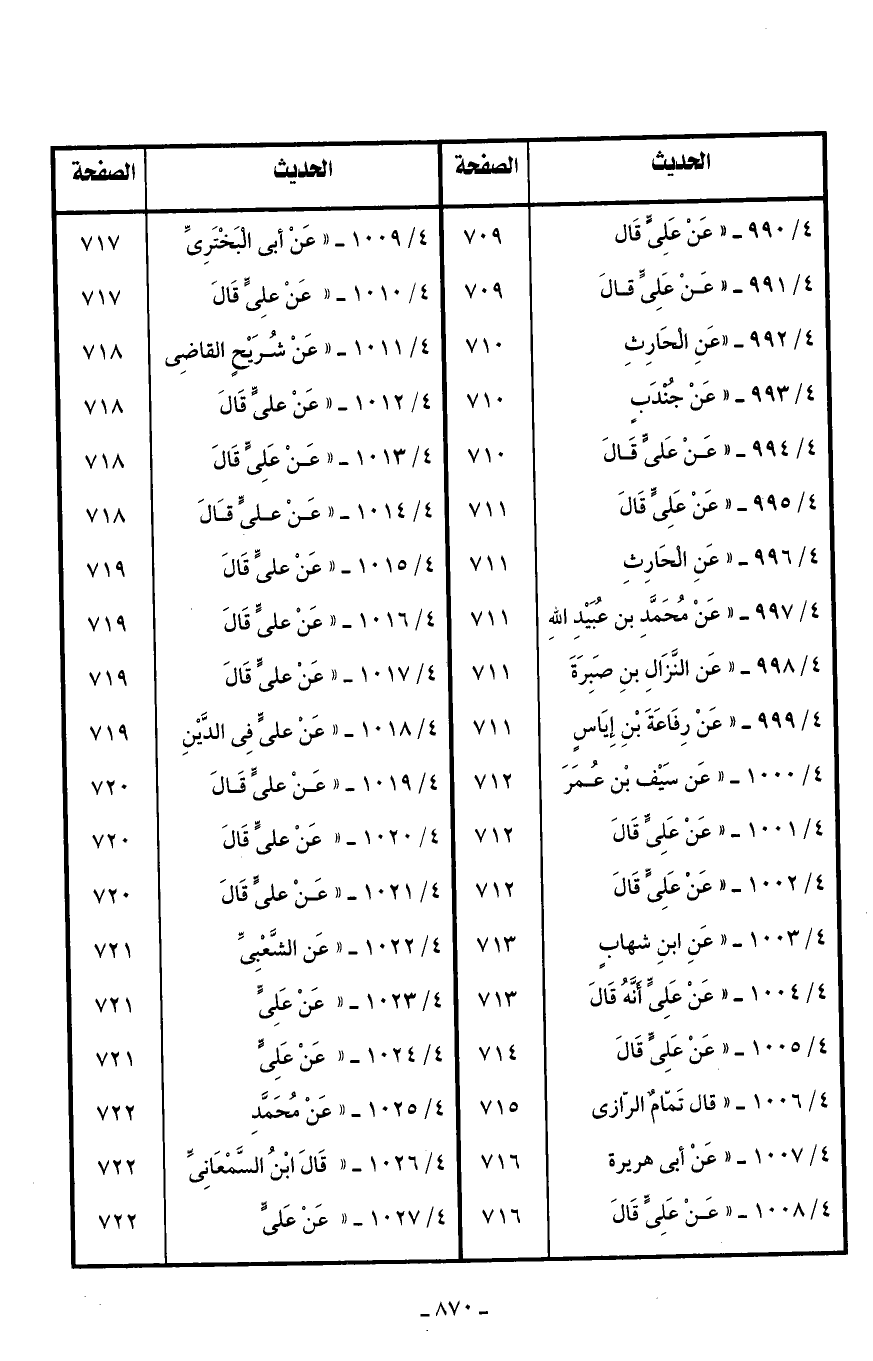 الحديث الصفحة الحديث الصفحة
٤/ ٩٩٠ ـ « عَنْ عَلِىٍّ قَال ٧٠٩ ٤/ ١٠٠٩ ـ « عَنْ أبى الْبَخْتَرِىِّ ٧١٧
٤/ ٩٩١ ـ « عَـنْ عَلِىٍّ قـالَ ٧٠٩ ٤/ ١٠١٠ ـ « عَنْ علِىٍّ قَالَ ٧١٧
٤/ ٩٩٢ ـ «عَنِ الْحَارِثِ ٧١٠ ٤/ ١٠١١ ـ « عَنْ شُـرَيْحٍ القاضِى ٧١٨
٤/ ٩٩٣ ـ « عَنْ جُنْدَبٍ ٧١٠ ٤/ ١٠١٢ ـ « عَنْ علىٍّ قَالَ ٧١٨
٤/ ٩٩٤ ـ « عَـنْ عَلىٍّ قَـالَ ٧١٠ ٤/ ١٠١٣ ـ « عَـنْ عَلِىٍّ قَالَ ٧١٨
٤/ ٩٩٥ ـ « عَنْ عَلِىٍّ قَالَ ٧١١ ٤/ ١٠١٤ ـ « عَـنْ عـلىٍّ قـَالَ ٧١٨
٤/ ٩٩٦ ـ « عَنِ الْحَارِثِ ٧١١ ٤/ ١٠١٥ ـ « عَنْ علىٍّ قَالَ ٧١٩
٤/ ٩٩٧ ـ « عَنْ مُحَمَّدِ بن عُبَيْدِ اللهِ ٧١١ ٤/ ١٠١٦ ـ « عَنْ علىٍّ قَالَ ٧١٩
٤/ ٩٩٨ ـ « عَن النَّزَالِ بنِ صَبِرَةَ ٧١١ ٤/ ١٠١٧ ـ « عَنْ علىٍّ قَالَ ٧١٩
٤/ ٩٩٩ ـ « عَنْ رِفَاعَةَ بْنِ إِيَاسٍ ٧١١ ٤/ ١٠١٨ ـ « عَنْ علىٍّ فِى الدَّيْنِ ٧١٩
٤/ ١٠٠٠ ـ « عَن سَيْف بْن عُـمَرَ ٧١٢ ٤/ ١٠١٩ ـ « عَـنْ علىٍّ قَـالَ ٧٢٠
٤/ ١٠٠١ ـ « عَنْ عَلِىٍّ قَالَ ٧١٢ ٤/ ١٠٢٠ ـ « عَنْ علىٍّ قَالَ ٧٢٠
٤/ ١٠٠٢ ـ « عَنْ عَلِىٍّ قَالَ ٧١٢ ٤/ ١٠٢١ ـ « عَـنْ علىٍّ قَالَ ٧٢٠
٤/ ١٠٠٣ ـ « عَنِ ابنِ شهابٍ ٧١٣ ٤/ ١٠٢٢ ـ « عَن الشَّعْبِىِّ ٧٢١
٤/ ١٠٠٤ ـ « عَنْ عَلِىٍّ أَنَّهُ قَالَ ٧١٣ ٤/ ١٠٢٣ ـ « عَنْ عَلِىٍّ ٧٢١
٤/ ١٠٠٥ ـ « عَنْ عَلِىٍّ قَالَ ٧١٤ ٤/ ١٠٢٤ ـ « عَنْ عَلِىٍّ ٧٢١
٤/ ١٠٠٦ ـ « قال تَمّامٌ الرّازى ٧١٥ ٤/ ١٠٢٥ ـ « عَنْ مُحَمَّدِ ٧٢٢
٤/ ١٠٠٧ ـ « عَنْ أبى هريرة ٧١٦ ٤/ ١٠٢٦ ـ « قَالَ ابْنُ السَّمْعَانِىِّ ٧٢٢
٤/ ١٠٠٨ ـ « عَـنْ عَلِىٍّ قَالَ ٧١٦ ٤/ ١٠٢٧ ـ « عَنْ عَلىٍّ ٧٢٢
ـ ٨٧٠ ـ